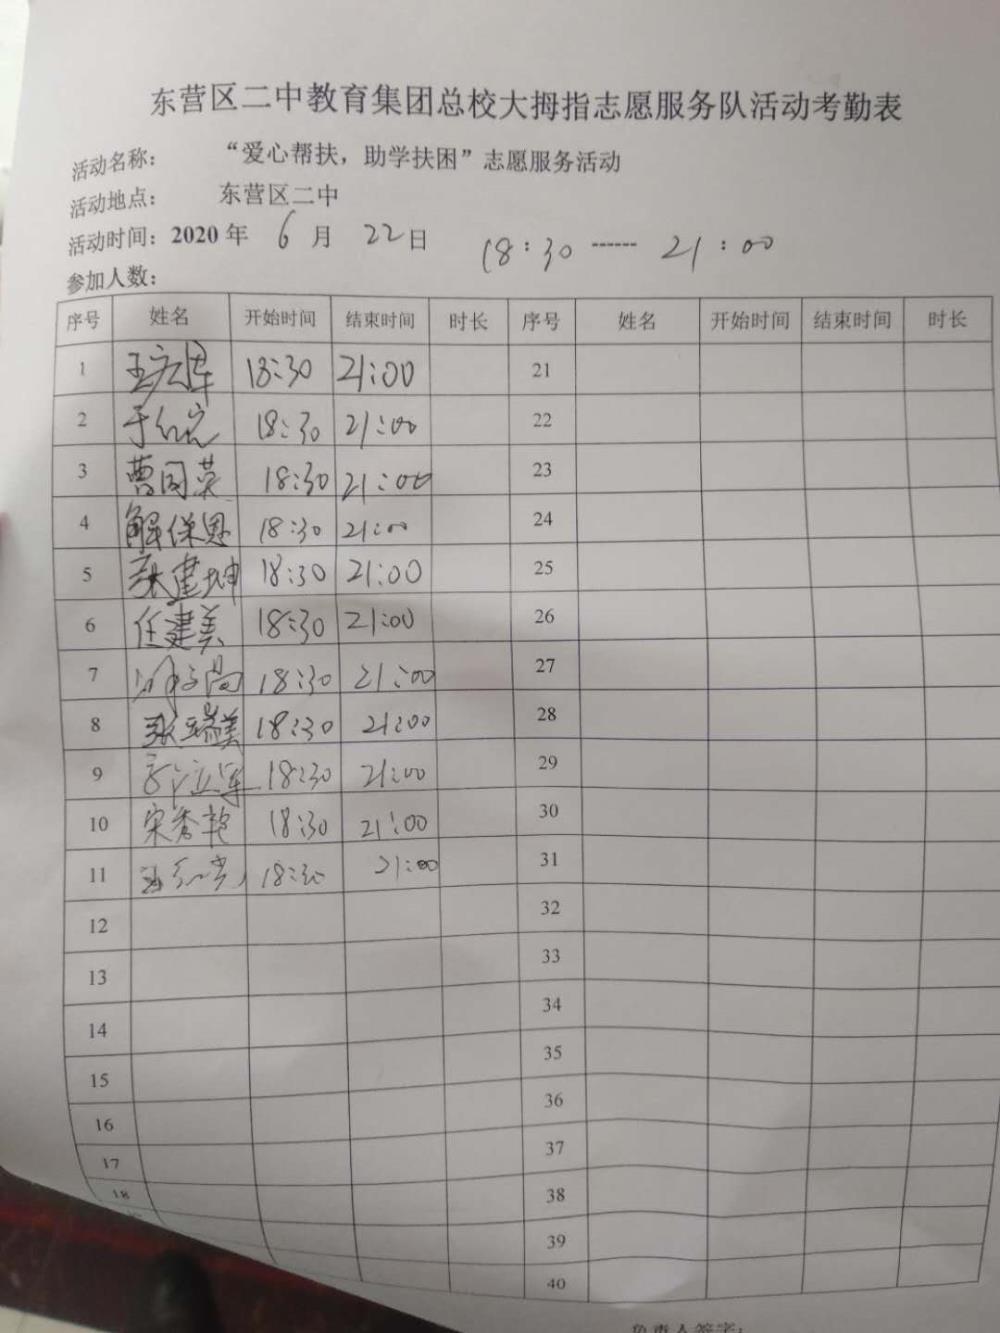 东营区二中教育集团总校大拇指志愿服务队活动考勤表
活动名称： “爱心帮扶，助学扶困”志愿服务活动
活动地点： 东营区二中
活动时间：2020 年 6 月 22 日 18:30 ------ 21:00
参加人数：
序号 姓名 开始时间 结束时间 时长 序号 姓名 开始时间 结束时间 时长
1 18:30 21:00 21
2 18:30 21:00 22
3 曹同英 18:30 21:00 23
4 解保恩 18:30 21:00 24
5 张建坤 18:30 21:00 25
6 任建美 18:30 21:00 26
7 18:30 21:00 27
8 张瑞美 18:30 21:00 28
9 18:30 21:00 29
10 宋秀艳 18:30 21:00 30
11 18:30 21:00 31
12 32
13 33
14 34
15 35
16 36
17 37
18 38
39
40
负责人签字：